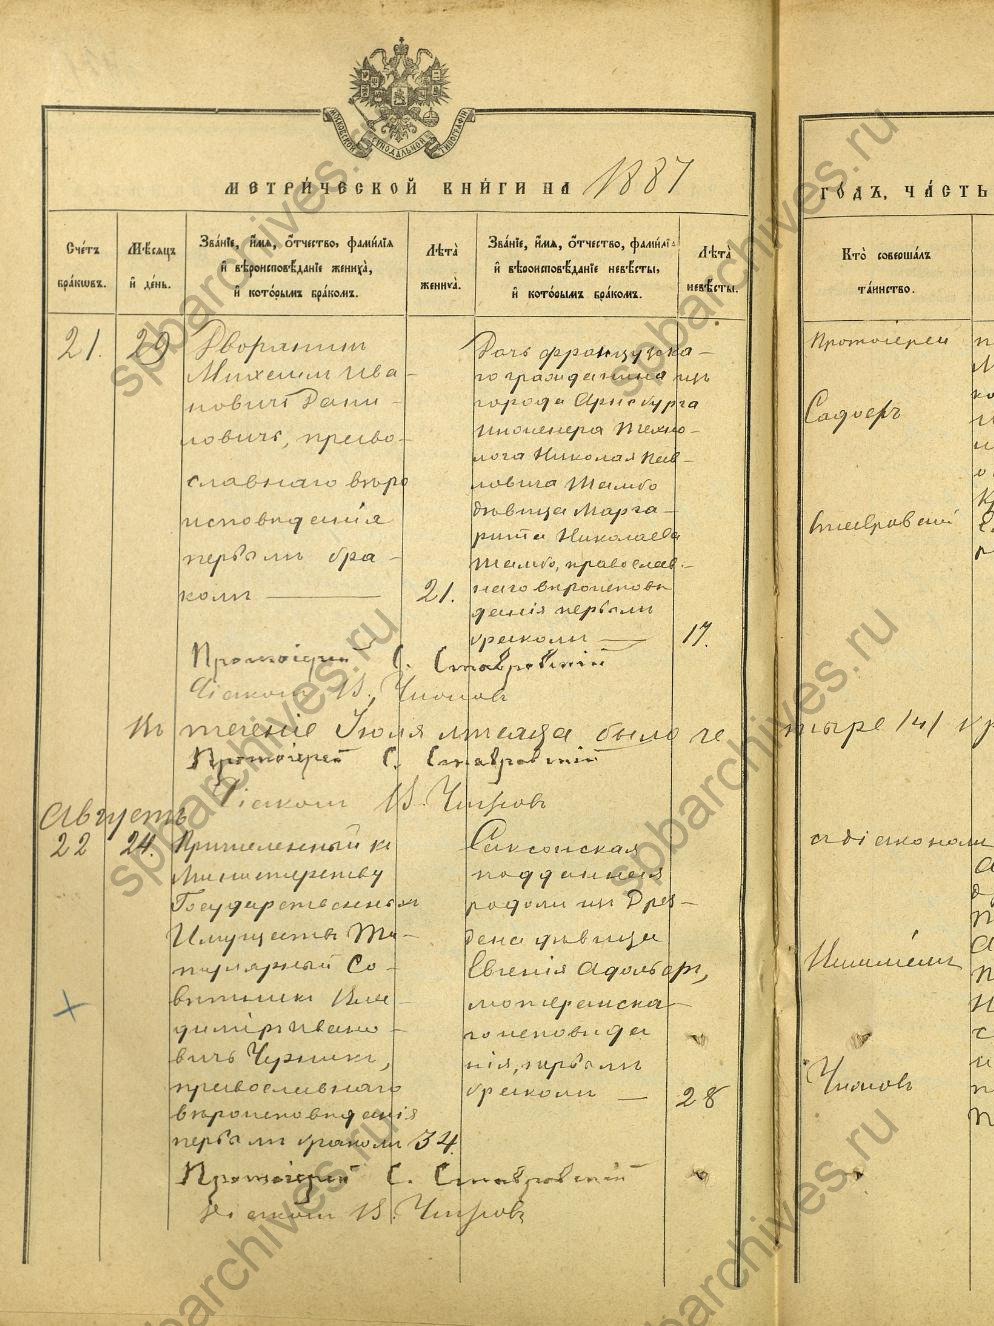 МОСКОВСКОЙ СѴНОДАЛЬНОЙ ТИПОГРАФІИ
МЕТРИ́ЧЕСКОЙ КНИ́ГИ НА 1887
ГО́ДЪ, ЧА́СТЬ
Сче́тъ бра́кѡвъ.
Мѣ́сѧцъ и҆ де́нь.
Зва́нїе, и҆́мѧ, ѻ҆́тчество, фами́лїѧ
и҆ вѣроисповѣ́данїе жениха̀,
и҆ кото́рымъ бра́комъ.
Лѣта̀ жениха̀.
Зва́нїе, и҆́мѧ, ѻ҆́тчество, фами́лїѧ
и҆ вѣроисповѣ́данїе невѣ́сты,
и҆ кото́рымъ бра́комъ.
Лѣта̀ невѣ́сты.
Кто̀ соверша́лъ
та́инство.
21. 29
Дворянинъ
Михаилъ Ива-
новичъ Дани-
ловичъ, право-
славнаго вѣро
исповѣданія
первымъ бра-
комъ
21.
Дочь французска-
го гражданина изъ
города
инженера Техно-
лога Николая Пав-
ловича
дѣвица Марга-
рита Николаева
православ-
наго вѣроисповѣ
данія первымъ
бракомъ
17.
Протоіерей
Ставровскій
Протоіерей С. Ставровскій
Діаконъ В. Чижовъ
Въ теченіе Іюля мѣсяца было че
тыре /4/
Протоіерей С. Ставровскій
Діаконъ В. Чижовъ
Августъ
22 24.
Причисленный къ
Министерству
Государственныхъ
Имуществъ Ти-
тулярный Со-
вѣтникъ Вла-
диміръ Ивано-
вичъ
православнаго
вѣроисповѣданія
первымъ бракомъ 34.
Саксонская
подданная
родомъ изъ Дрез-
дена дѣвица
Евгенія
лютеранска-
го исповѣда
нія, первымъ
бракомъ
28
съ діакономъ
Чижовъ
Протоіерей С. Ставровскій
Діаконъ В. Чижовъ
spbarchives.ru